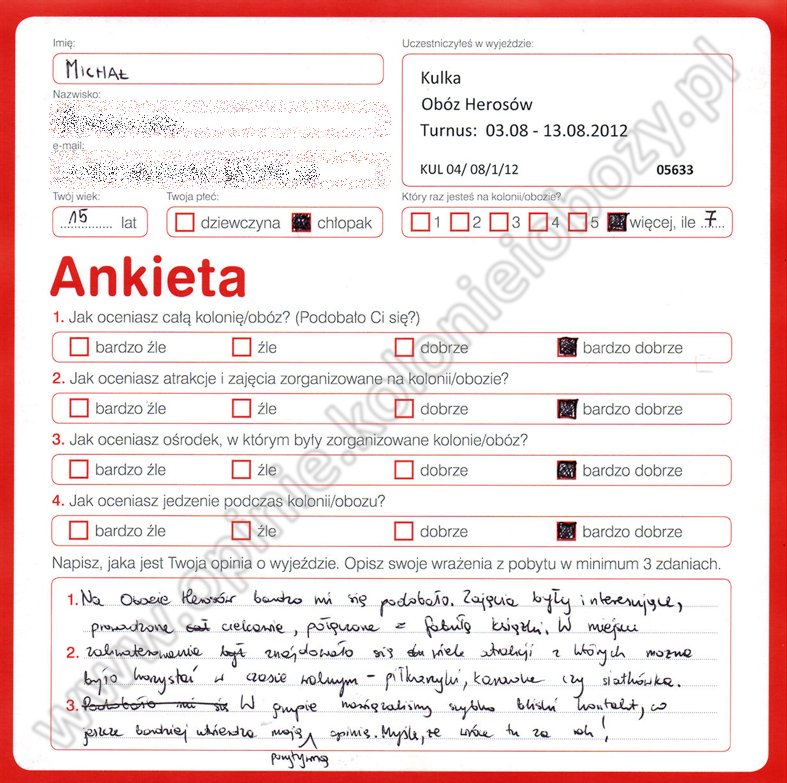 Imię:
MICHAŁ
Uczestniczyłeś w wyjeździe:
Kulka
Obóz Herosów
Turnus: 03.08 - 13.08.2012
KUL 04/ 08/1/12 05633
Nazwisko:
e-mail:
Twój wiek:
15 lat
Twoja płeć:
dziewczyna chłopak
Który raz jesteś na kolonii/obozie?
1 2 3 4 5 więcej, ile 7
Ankieta
1. Jak oceniasz całą kolonię/obóz? (Podobało Ci się?)
bardzo źle źle dobrze bardzo dobrze
2. Jak oceniasz atrakcje i zajęcia zorganizowane na kolonii/obozie?
bardzo źle źle dobrze bardzo dobrze
3. Jak oceniasz ośrodek, w którym były zorganizowane kolonie/obóz?
bardzo źle źle dobrze bardzo dobrze
4. Jak oceniasz jedzenie podczas kolonii/obozu?
bardzo źle źle dobrze bardzo dobrze
Napisz, jaka jest Twoja opinia o wyjeździe. Opisz swoje wrażenia z pobytu w minimum 3 zdaniach.
1. Na Obozie Herosów bardzo mi się podobało. Zajęcia były interesujące,
prowadzone ciekawie, połączone z fabułą książki. W miejscu
2. zakwaterowania znajdowało się wiele atrakcji z których można
było korzystać w czasie wolnym - piłkarzyki, kanadse czy siatkówka.
3. Podobało mi się W grupie nawiązaliśmy szybko bliski kontakt, co
jeszcze bardziej utwierdza moją pozytywną opinię. Myślę, że wrócę tu za rok!
www.opinie.kolonieiobozy.pl